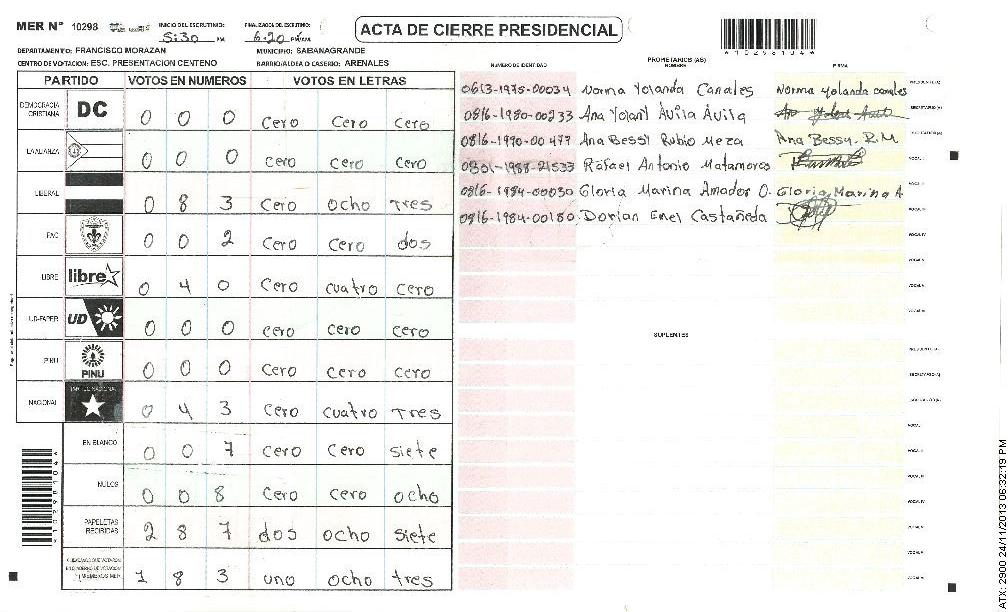 MER N° 10298 INICIO DEL ESCRUTINIO: 5:30 PM FINALIZACION DEL ESCRUTINIO: 6:20 PM
ACTA DE CIERRE PRESIDENCIAL
DEPARTAMENTO: FRANCISCO MORAZAN MUNICIPIO: SABANAGRANDE
CENTRO DE VOTACION: ESC. PRESENTACION CENTENO BARRIO/ALDEA O CASERIO: ARENALES
PARTIDO VOTOS EN NUMEROS VOTOS EN LETRAS
DEMOCRACIA CRISTIANA DC 0 0 0 Cero Cero Cero
LA ALIANZA 0 0 0 Cero Cero Cero
LIBERAL 0 8 3 Cero Ocho Tres
FAC 0 0 2 Cero Cero dos
LIBRE libre 0 4 0 Cero cuatro Cero
UD-FAPER UD 0 0 0 Cero Cero Cero
PINU PINU 0 0 0 Cero Cero Cero
NACIONAL PARTIDO NACIONAL 0 4 3 Cero Cuatro Tres
EN BLANCO 0 0 7 Cero Cero Siete
NULOS 0 0 8 Cero Cero Ocho
PAPELETAS RECIBIDAS 2 8 7 dos ocho siete
1 8 3 uno ocho tres
NUMERO DE IDENTIDAD PROPIETARIOS (AS) NOMBRE FIRMA
0613-1975-00034 Norma Yolanda Canales Norma Yolanda canales PRESIDENTE (A)
0816-1980-00233 Ana Yolanl Ávila Ávila SECRETARIO (A)
0816-1990-00477 Ana Bessy Rubio Meza Ana Bessy. R.M
0801-1988-21533 Rafael Antonio Matamoros VOCAL I
0816-1984-00030 Gloria Marina Amador O. Gloria Marina A
0816-1984-00180 Dorian Enel Castañeda
SUPLENTES
ATX: 2900 24/11/2013 06:32:19 PM